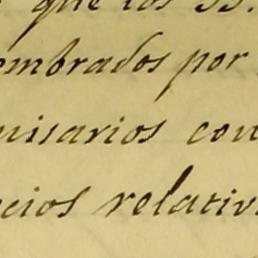 que los SS.
ombrados por
misarios con
cios relativ